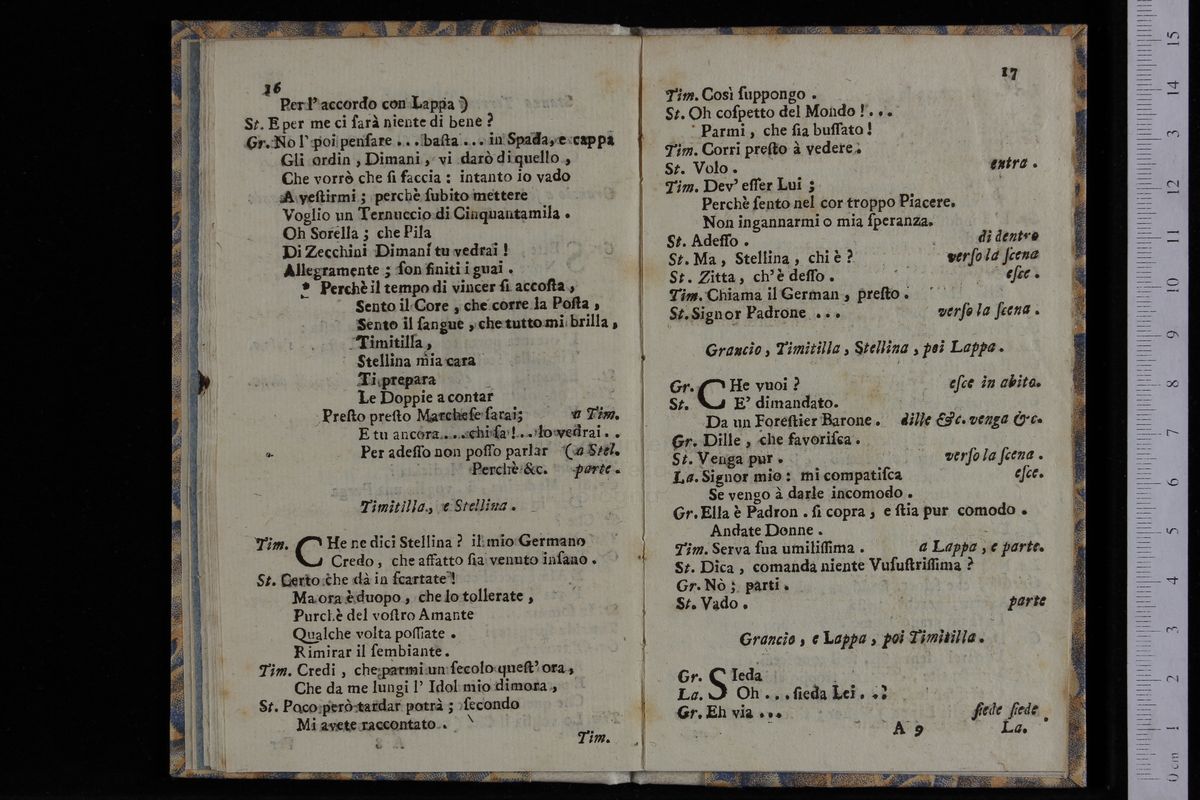 16
Per l' accordo con Lappa )
St. E per me ci sarà niente di bene ?
Gr. No l' poi pensare . . . basta . . . in Spada, e cappa
Gli ordin , Dimani , vi darò di quello ,
Che vorrò che si faccia : intanto io vado
A vestirmi ; perchè subito mettere
Voglio un Ternuccio di Cinquantamila .
Oh Sorella ; che Pila
Di Zecchini Dimani tu vedrai !
Allegramente ; son finiti i guai .
* Perchè il tempo di vincer si accosta ,
Sento il Core , che corre la Posta ,
Sento il sangue , che tutto mi brilla ,
Timitilla ,
Stellina mia cara
Ti prepara
Le Doppie a contar
Presto presto Marchese sarai; a Tim.
E tu ancora . . . chi sa ! . . lo vedrai . .
Per adesso non posso parlar ( a Stel.
Perchè &c. parte .
Timitilla , e Stellina .
Tim. CHe ne dici Stellina ? il mio Germano
Credo , che affatto sia venuto insano .
St. Certo che dà in scartate !
Ma ora è duopo , che lo tollerate ,
Purchè del vostro Amante
Qualche volta possiate .
Rimirar il sembiante.
Tim. Credi , che parmi un secolo quest' ora ,
Che da me lungi l' Idol mio dimora ,
St. Poco però tardar potrà ; secondo
Mi avete raccontato .
Tim.
17
Tim. Così suppongo .
St. Oh cospetto del Mondo ! . . .
Parmi , che sia bussato !
Tim. Corri presto à vedere .
St. Volo . entra .
Tim. Dev' esser Lui ;
Perchè sento nel cor troppo Piacere.
Non ingannarmi o mia speranza.
St. Adesso . di dentro
St. Ma , Stellina , chi è ? verso la scena
St. Zitta , ch' è desso . esce .
Tim. Chiama il German , presto .
St. Signor Padrone . . . verso la scena .
Grancio , Timitilla , Stellina , poi Lappa .
Gr. CHe vuoi ? esce in abito.
St. E' dimandato.
Da un Forestier Barone . dille &c. venga &c.
Gr. Dille , che favorisca .
St. Venga pur . verso la scena .
La. Signor mio : mi compatisca esce.
Se vengo à darle incomodo .
Gr. Ella è Padron . si copra , e stia pur comodo .
Andate Donne .
Tim. Serva sua umilissima . a Lappa , e parte.
St. Dica , comanda niente Vusustrissima ?
Gr. Nò ; parti .
St. Vado . parte
Grancio , e Lappa , poi Timitilla .
Gr. SIeda
La. Oh . . . sieda Lei . . ?
Gr. Eh via . . . siede siede
A 9 La.